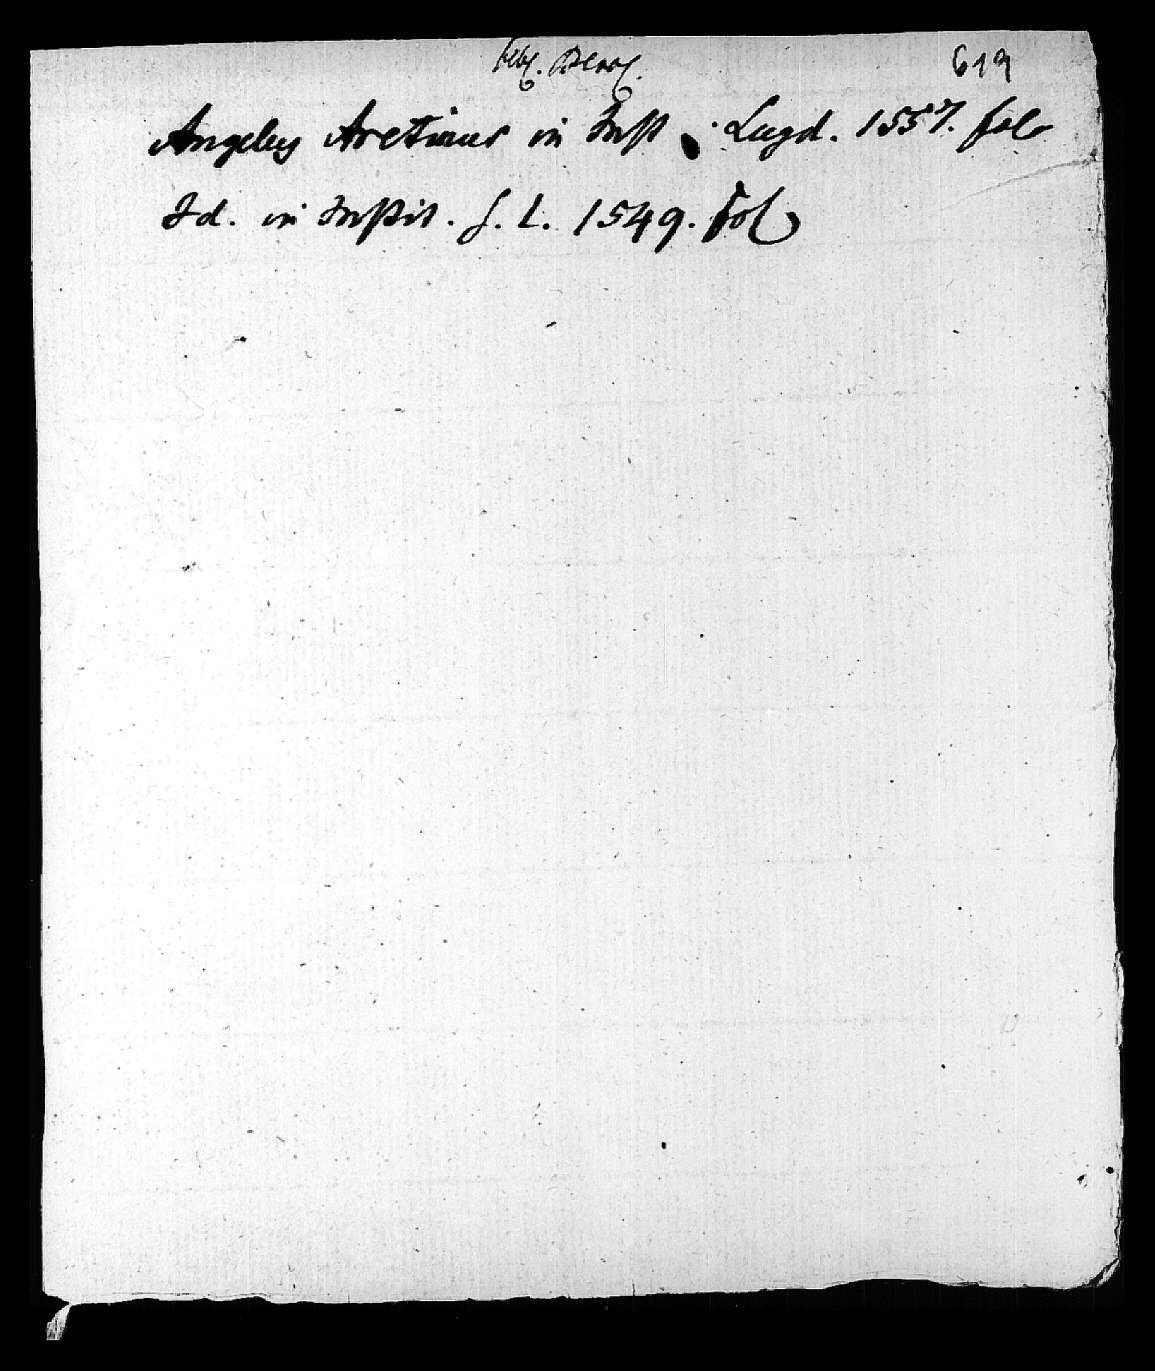 619
Angelus Aretinus in Inst. Lugd. 1557. fol
Id. in Instit. s. l. 1549. fol